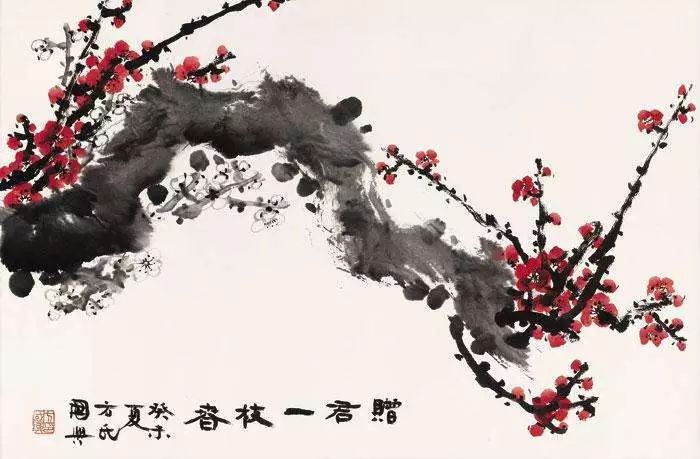 贈君一枝春
癸未
夏
方氏
國興